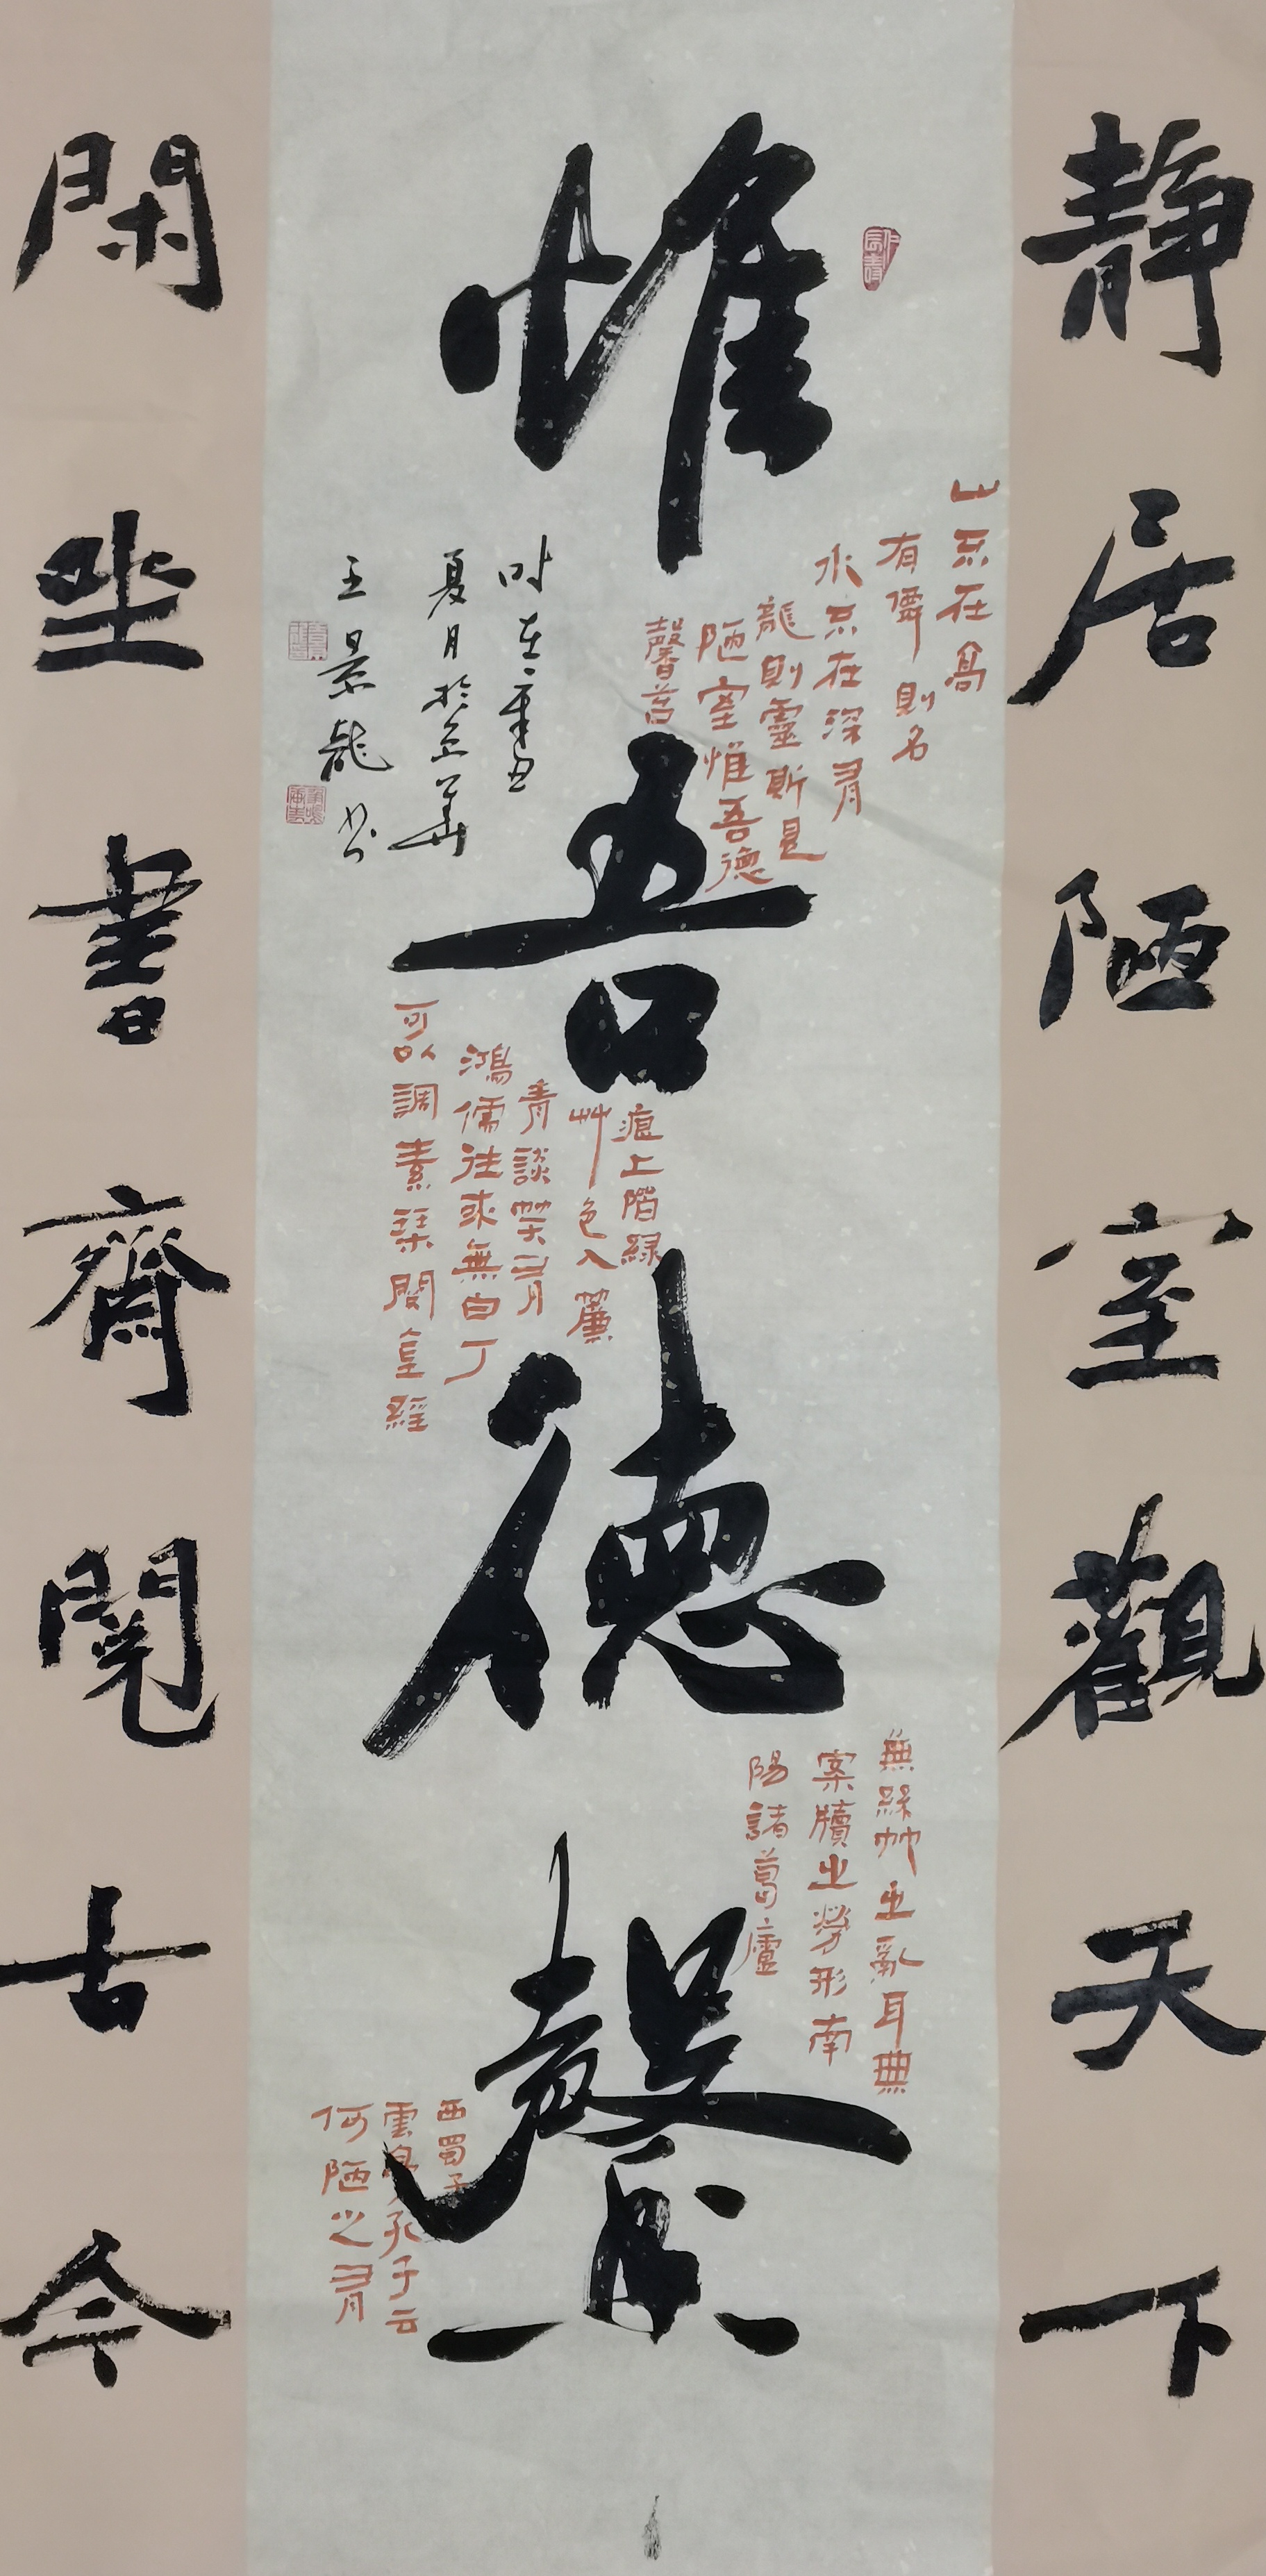 靜居陋室觀天下
惟吾德馨
山不在高
有僊則名
水不在深有
龍則靈斯是
陋室惟吾德
馨苔
痕上階綠
艸色入簾
青談笑有
鴻儒往來無白丁
可以調素琴閱金經
無絲竹之亂耳無
案牘之勞形南
陽諸葛廬
西蜀子
雲亭孔子云
何陋之有
時在辛丑
夏月於京華
王景龍書
閑坐書齋閱古今